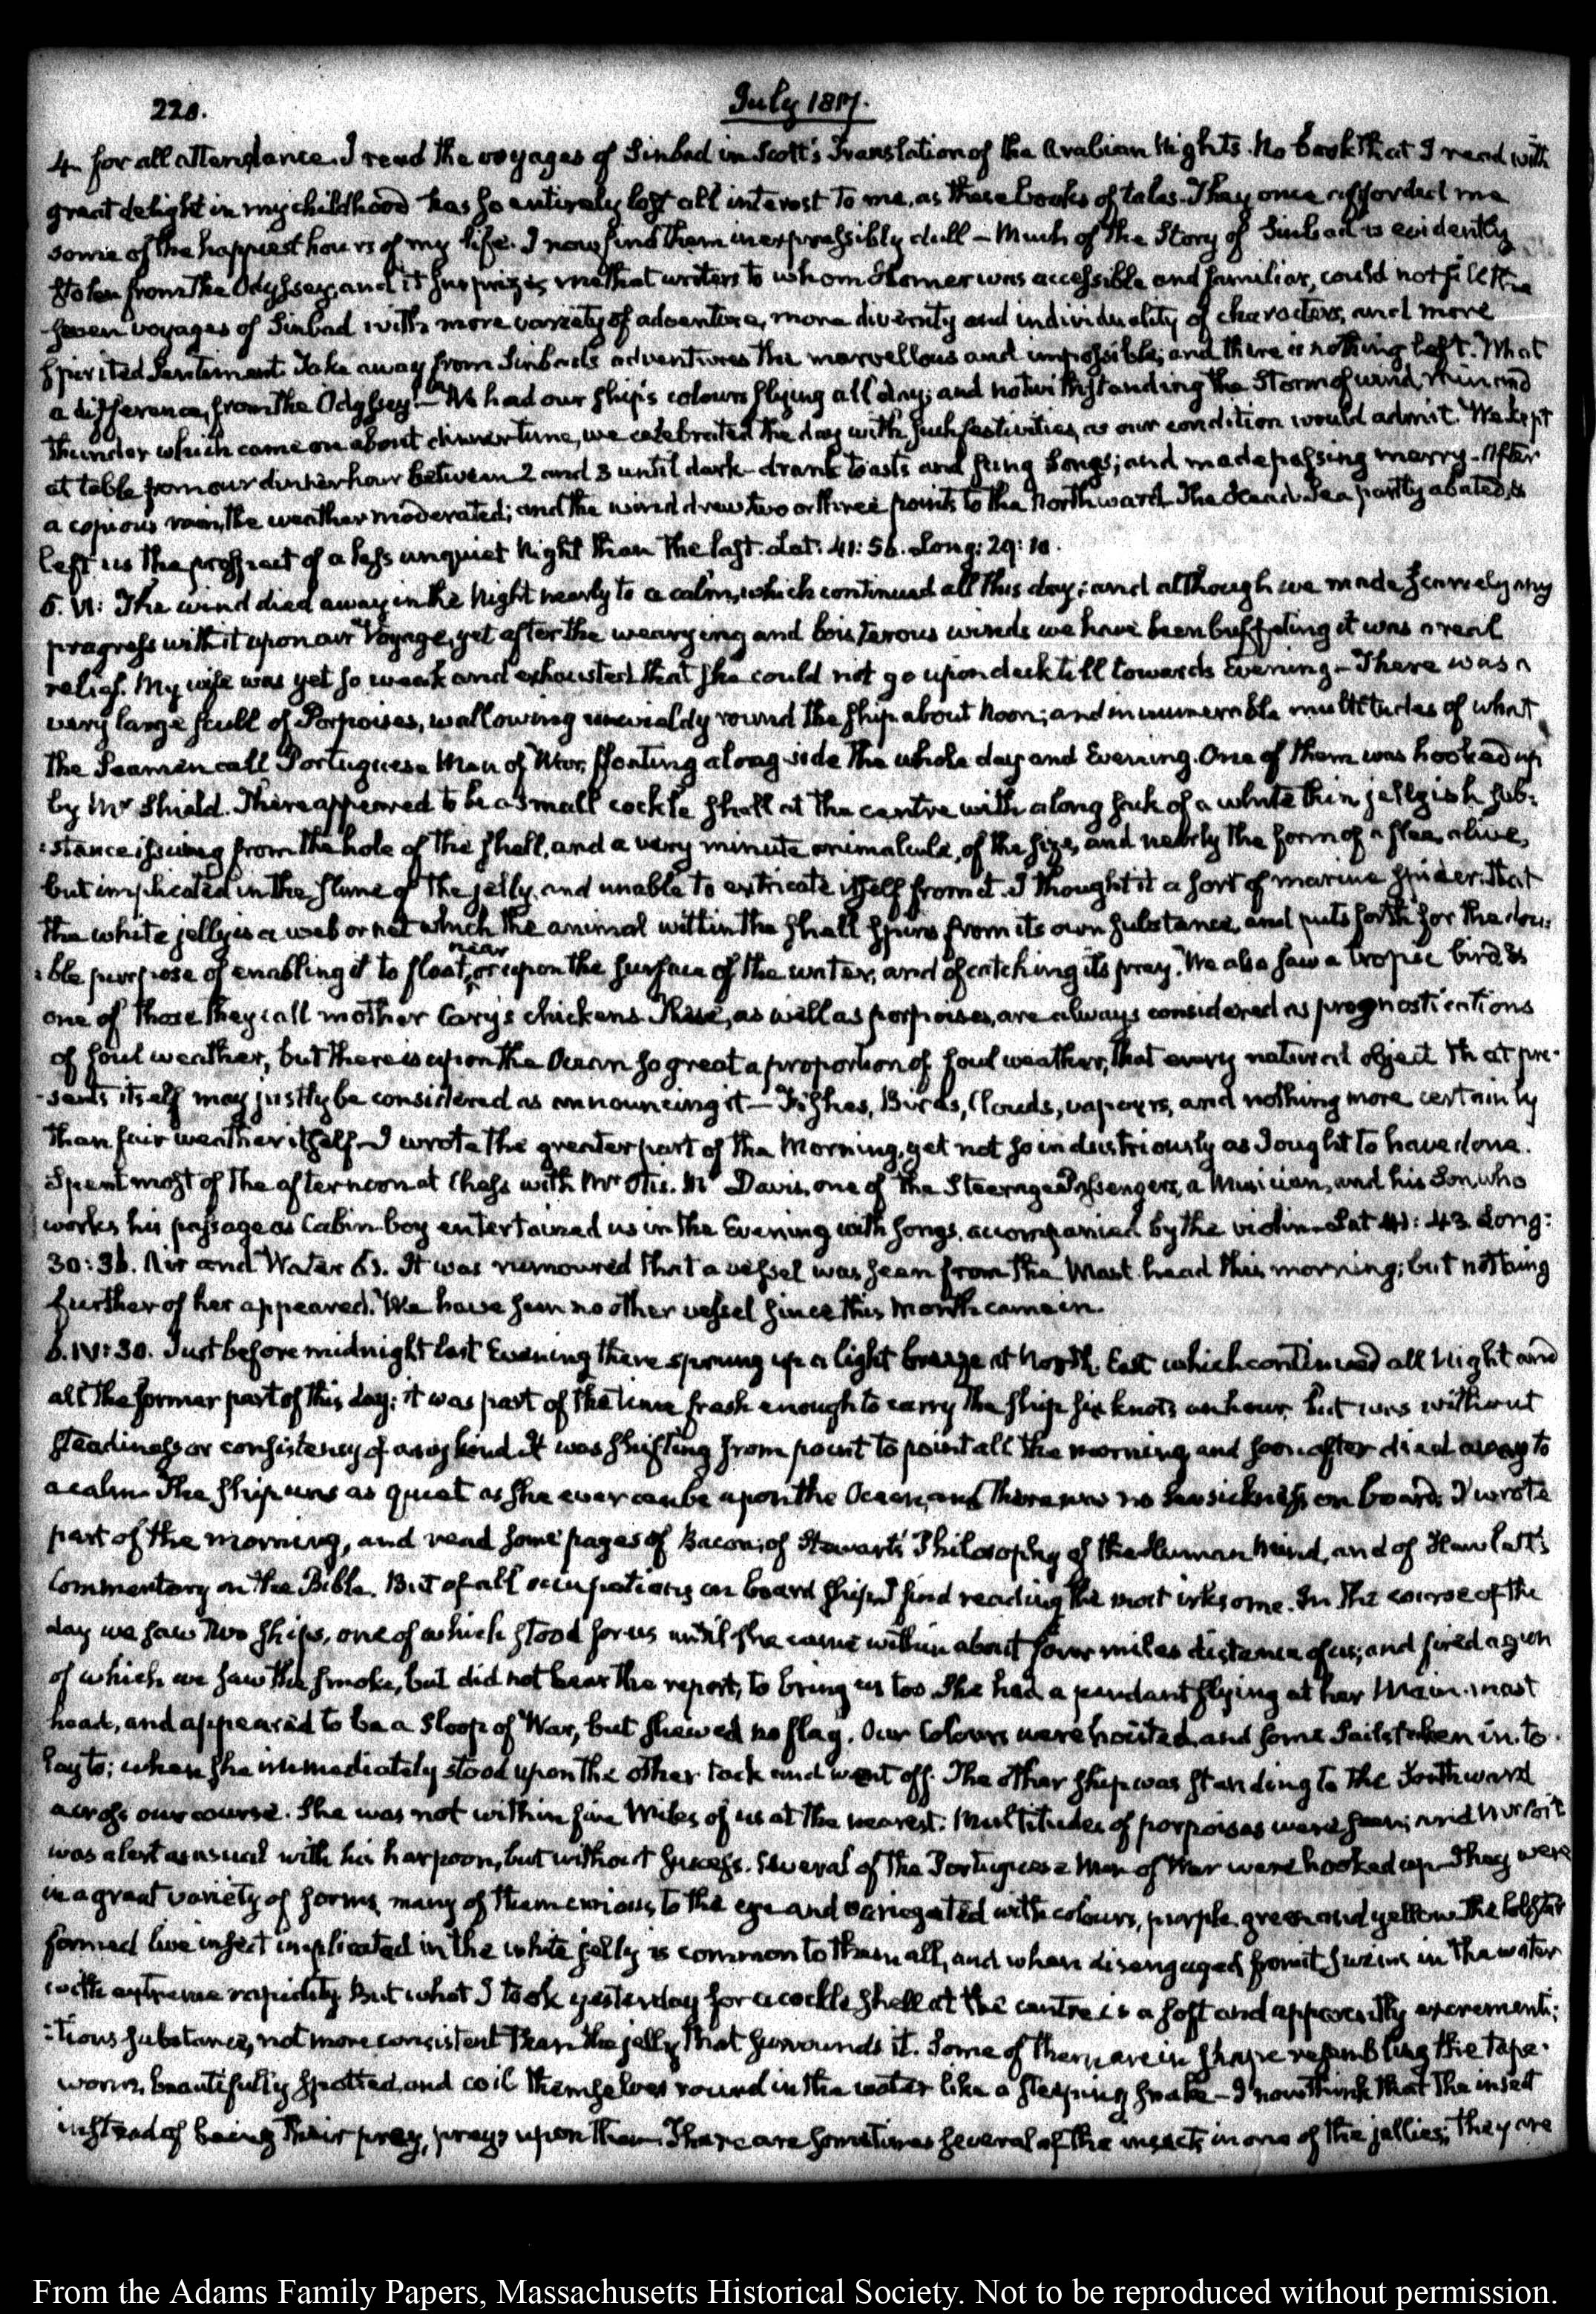 220.
July 1817.
4 for all attendance. I read the voyages of Sinbad in Scott's Translation of the Arabian Nights. No book that I read with
great delight in my childhood has so entirely lost all interest to me, as these books of tales. They once afforded me
some of the happiest hours of my life. I now find them inexpressibly dull — Much of the Story of Sinbad is evidently
stolen from the Odyssey, and it surprizes me that writers to whom Homer was accessible and familiar, could not fill the
seven voyages of Sinbad with more variety of adventure, more diversity and individuality of characters, and more
spirited Sentiment. Take away from Sinbad's adventures the marvellous and impossible; and there is nothing left. What
a difference, from the Odyssey! — We had our ship's colours flying all day; and notwithstanding the Storm of wind, rain and
thunder which came on about dinner time, we celebrated the day with such festivities, as our condition would admit. We kept
at table from our dinner hour between 2 and 3 until dark — drank toasts and sung songs; and made passing merry — After
a copious rain, the weather moderated; and the wind drew two or three points to the Northward. The Head Sea partly abated, &
left us the prospect of a less unquiet Night than the last. Lat: 41:56. Long: 29:10.
5. VI: The wind died away in the Night nearly to a calm, which continued all this day; and although we made scarcely any
progress with it upon our Voyage, yet after the wearying and boisterous winds we have been buffeting it was a real
relief. My wife was yet so weak and exhausted that she could not go upon deck till towards Evening — There was a
very large scull of Porpoises, wallowing unwieldy round the ship about Noon; and innumerable multitudes of what
the Seamen call Portuguese Men of War, floating along side the whole day and Evening. One of them was hooked up
by Mr Shield. There appeared to be a small cockle shell at the centre with a long sack of a white thin jellyish sub:
:stance issuing from the hole of the shell, and a very minute animalcule, of the size, and nearly the form of a flea, alive,
but implicated in the slime of the jelly, and unable to extricate itself from it. I thought it a sort of marine spider: that
the white jelly is a web or net which the animal within the shell spins from its own substance, and puts forth for the dou:
:ble purpose of enabling it to float, near or upon the surface of the water, and of catching its prey. We also saw a tropic bird &
one of those they call mother Cary's chickens. These, as well as porpoises, are always considered as prognostications
of foul weather, but there is upon the Ocean so great a proportion of foul weather, that every natural object that pre-
-sents itself may justly be considered as announcing it — Fishes, Birds, Clouds, vapours, and nothing more certainly
than fair weather itself — I wrote the greater part of the Morning, yet not so industriously as I ought to have done.
Spent most of the afternoon at Chess with Mr Otis. Mr Davis, one of the Steerage Passengers, a Musician, and his Son, who
works his passage as Cabin-boy entertained us in the Evening with songs, accompanied by the violin. Lat 41:43. Long:
30:36. Air and Water 65. It was rumoured that a vessel was seen from the Mast head this morning; but nothing
further of her appeared. We have seen no other vessel since this Month came in.
6. IV:30. Just before midnight last Evening there sprung up a light breeze at North East which continued all Night and
all the former part of this day: it was part of the time fresh enough to carry the ship six knots an hour, but was without
steadiness or consistency of any kind. It was shifting from point to point all the morning, and soon after died away to
a calm. The ship was as quiet as she ever can be upon the Ocean, and there was no Sea sickness on board. I wrote
part of the morning, and read some pages of Bacon; of Stewart's Philosophy of the Human Mind, and of Hewlett's
Commentary on the Bible. But of all occupations on board ship I find reading the most irksome. In the course of the
day we saw two ships, one of which stood for us until she came within about four miles distance of us; and fired a gun
of which we saw the smoke, but did not hear the report, to bring us too. She had a pendant flying at her Main-mast
head, and appeared to be a Sloop of War, but shewed no flag. Our Colours were hoisted, and some Sails taken in, to
lay to; when she immediately stood upon the other tack and went off. The other ship was standing to the Southward
across our course. She was not within five Miles of us at the nearest. Multitudes of porpoises were seen; and
was alert as usual with his harpoon, but without success. Several of the Portuguese Men of War were hooked up. They were
in a great variety of forms, many of them curious to the eye and variegated with colours, purple, green and yellow. The lobster
formed live insect implicated in the white jelly is common to them all, and when disengaged from it swims in the water
with extreme rapidity. But what I took yesterday for a cockle shell at the centre is a soft and apparently excrementi:
:tious substance, not more consistent than the jelly that surrounds it. Some of them are in shape resembling the tape-
worm, beautifully spotted, and coil themselves round in the water like a sleeping snake — I now think that the insect
instead of being their prey, preys upon them. There are sometimes several of the insects in one of the jellies; they are
From the Adams Family Papers, Massachusetts Historical Society. Not to be reproduced without permission.